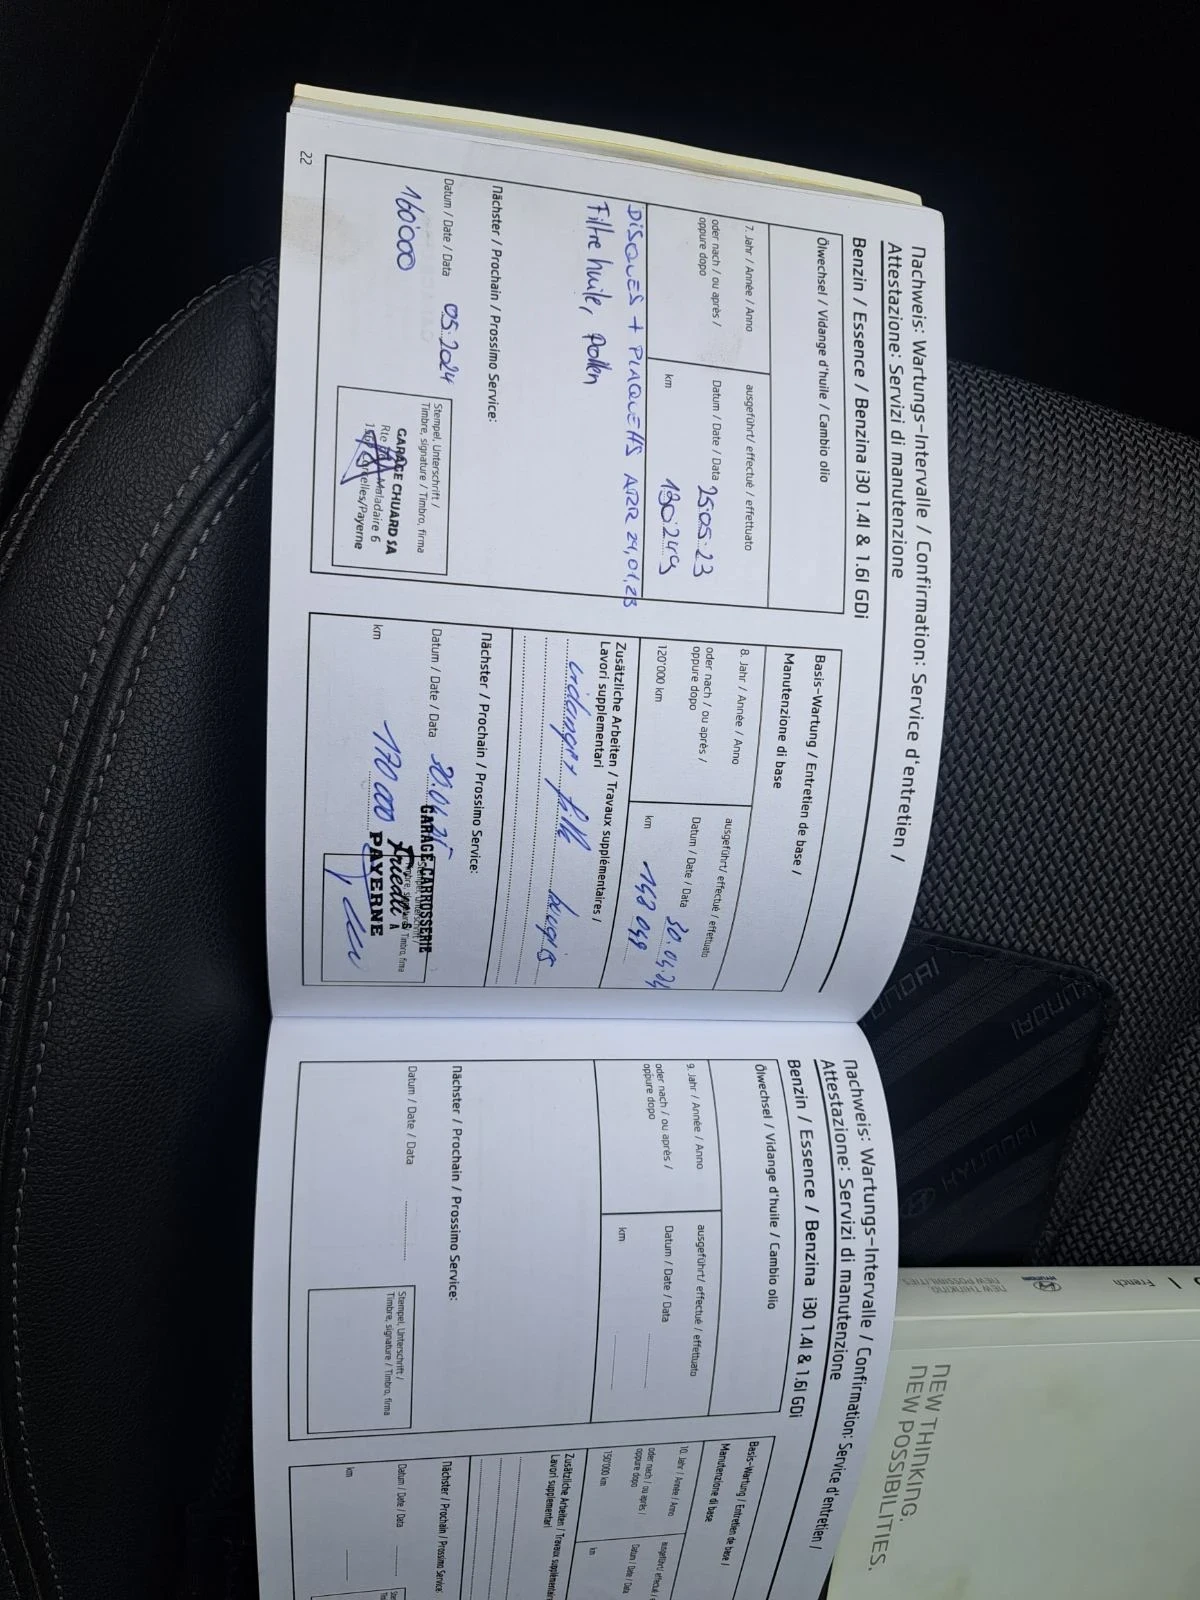 Nachweis: Wartungs-Intervalle / Confirmation: Service d'entretien /
Attestazione: Servizi di manutenzione
Benzin / Essence / Benzina i30 1.4l & 1.6l GDi
Ölwechsel / Vidange d'huile / Cambio olio
7. Jahr / Année / Anno
oder nach / ou après /
oppure dopo
ausgeführt/ effectué / effettuato
Datum / Date / Data 25.05.23
km 130'249
DISQUES + PLAQUETTS ARR 24,01,23
Filtre huile, Pollen
Nächster / Prochain / Prossimo Service:
Datum / Date / Data 05.2024
160'000
Stempel, Unterschrift /
Timbre, signature / Timbro, firma
GARAGE CHUARD SA
Rte Maladaire 6
Corcelles/Payerne
22
Basis-Wartung / Entretien de base /
Manutenzione di base
8. Jahr / Année / Anno
oder nach / ou après /
oppure dopo
120'000 km
ausgeführt/ effectué / effettuato
Datum / Date / Data 30.04.24
km
Zusätzliche Arbeiten / Travaux supplémentaires /
Lavori supplementari
Nächster / Prochain / Prossimo Service:
Datum / Date / Data 30.04.25
km 170 000
GARAGE-CARROSSERIE
Friedli
PAYERNE
Nachweis: Wartungs-Intervalle / Confirmation: Service d'entretien /
Attestazione: Servizi di manutenzione
Benzin / Essence / Benzina i30 1.4l & 1.6l GDi
Ölwechsel / Vidange d'huile / Cambio olio
9. Jahr / Année / Anno
oder nach / ou après /
oppure dopo
ausgeführt/ effectué / effettuato
Datum / Date / Data
km
Nächster / Prochain / Prossimo Service:
Datum / Date / Data
Stempel, Unterschrift /
Timbre, signature / Timbro, firma
Basis-Wartung / Entretien de base /
Manutenzione di base
10. Jahr / Année / Anno
oder nach / ou après /
oppure dopo
150'000 km
ausgeführt/ effectué /
Datum / Date / Data
km
Zusätzliche Arbeiten / Travaux supplémentaires
Lavori supplementari
Nächster / Prochain / Prossimo Service:
Datum / Date / Data
km
HYUNDAI
HYUNDAI
HYUNDAI
French
HYUNDAI
NEW THINKING.
NEW POSSIBILITIES.
NEW THINKING.
NEW POSSIBILITIES.